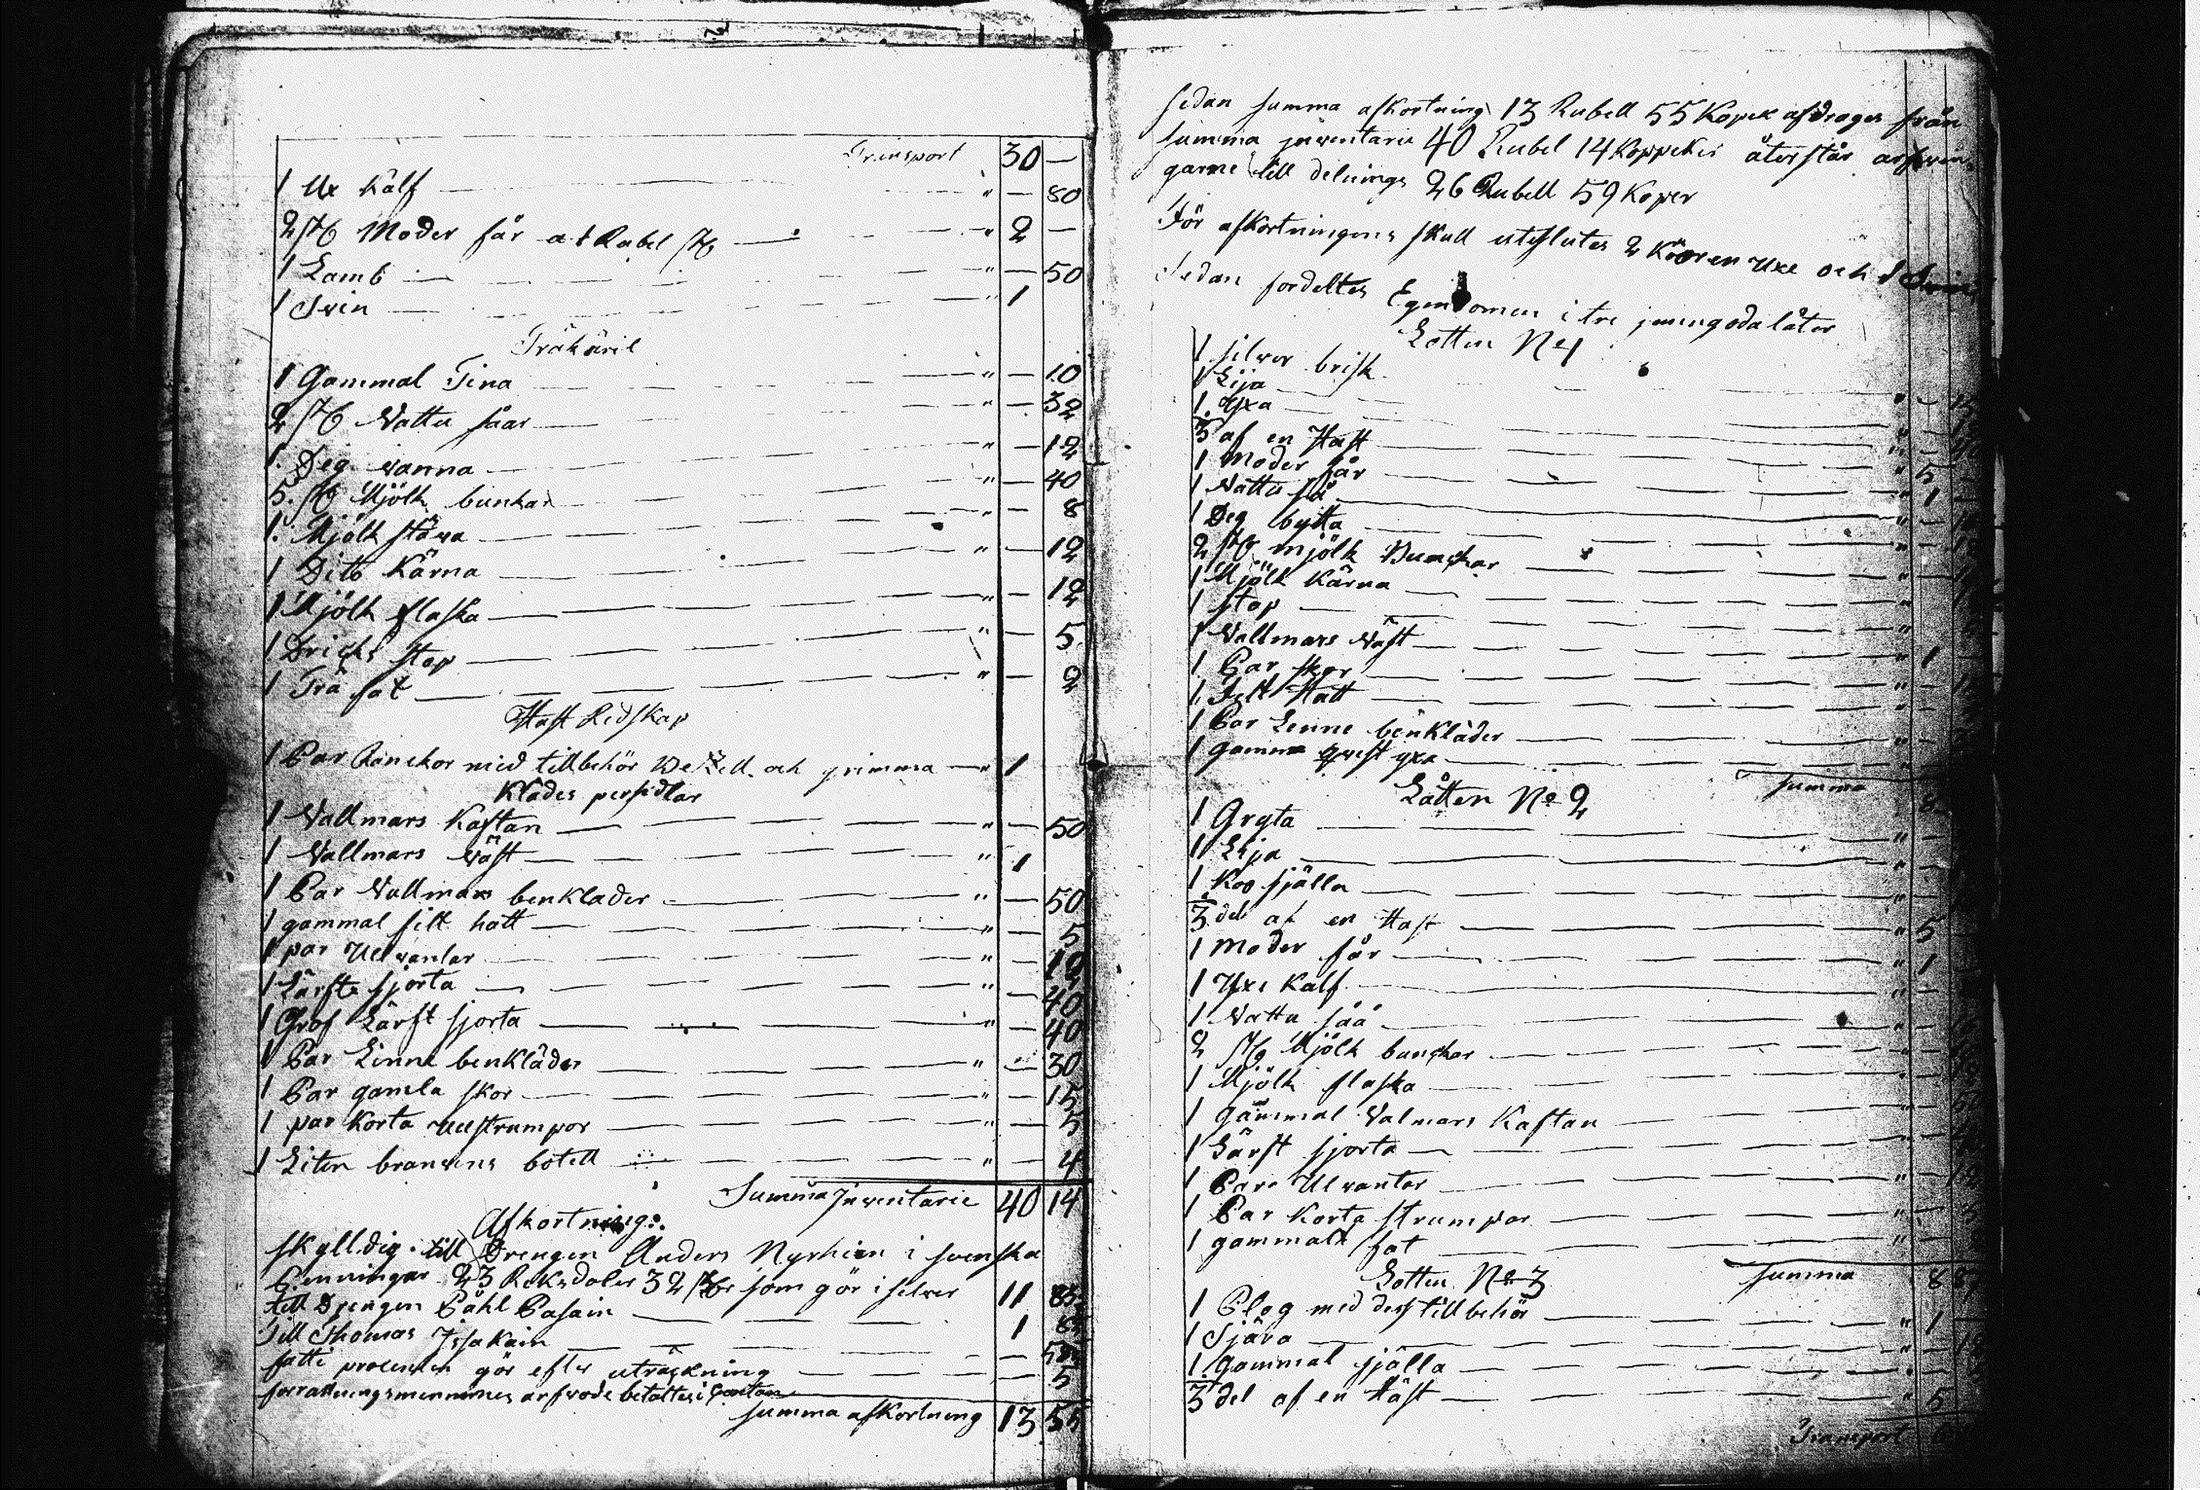 Transport 30 —
1 Ux Kalf " — 80
2 St Moder får a 1 Rubel St " 2 —
1 Lamb " — 50
1 Svin " 1
Träkäril
1 Gammal Tina " — 10
2 St Vattu såar " — 32
1. Deg vanna " — 12
5. St Mjölk bunkar " — 40
1. Mjölk stäva " — 8
1 Dito Kärna " — 12
1 Mjölk flaska " — 12
1 Dricks stop " — 5
1 Trä fat " — 2
Häst Redskap
1 Par Ranckor med tillbehör och grimma " 1
Kläder persedlar
1 Vallmars Kaftan " — 50
1 Vallmars Väst " 1
1 Par Vallmars benkläder " — 50
1 gammal filt hatt " — 5
1 par Ullvantar " — 12
1 Lärfts sjorta " — 40
1 Grof Lärft sjorta " — 40
1 Par Linne benkläder " — 30
1 Par gamla skor " — 15
1 par Korta Ullstrumpor " — 5
1 Liten bränvins botell " — 4
Summa Inventarie 40 14
Afkortning:
skylldig till Drengen Anders i svenska
Penningar 23 Reksdaler 32 som gör i silver 11
till Drengen Påhl Pasain 1
Till Thomas Isakain —
fatti procenten gör efter uträckning — 5
arfvode betaltes i
summa afkortning 13 55
sedan summa afkortning 13 Rubell 55 Kopek afdrages från
summa inventarie 40 Rubel 14 Koppeker återstår arfvin
garne till delnings 26 Rubell 59 Koper
För afkortningens skull uteslutes 2 Kor en Uxe och 1 Svin
Sedan fordeltes Egendomen i tre låter
Lotten No 1
1 silver brisk
1 Lija
1. Yxa
3 af en Häst " 5
1 Moder får " 1
1 Vattu så
1 Deg bytta
2 St mjölk Bunckar
1 Mjölk Kärna
1 stop
1 Vallmars Väst " 1
1 Par skor
1 Filt Hatt
1 Par Linne benkläder
1 yxa
summa 8
Låtten No 2
1 Gryta
1 Lija
1 Koo själla
3 del af en Häst " 5
1 Moder får " 1
1 Yxe Kalf
1 Vattu såå
2 St Mjölk bunckar
1 Mjölk flaska
1 gammal Valmars Kaftan
1 Lärft sjorta
1 Par Ulvantar
1 Par Korta strumpor
1 gammalt fat
summa 8
Lotten No 3
1 Plog med dess tillbehör " 1
1 Sjära
1. gammal själla
3 del af en Häst " 5
Transport